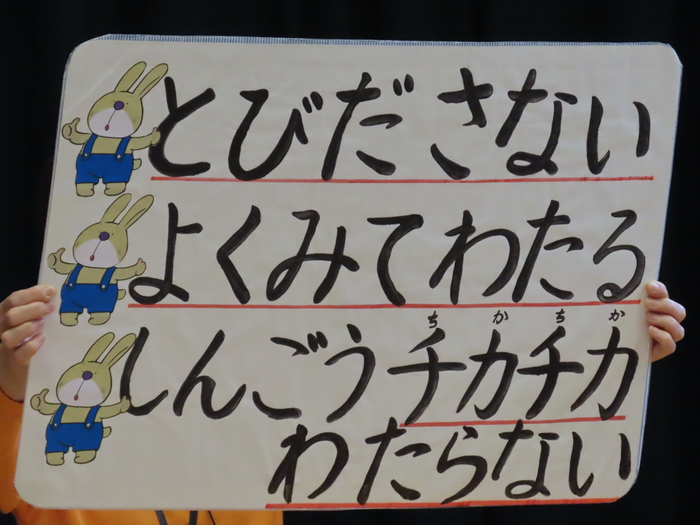 とびださない
よくみてわたる
ちかちか
しんごうチカチカ
わたらない